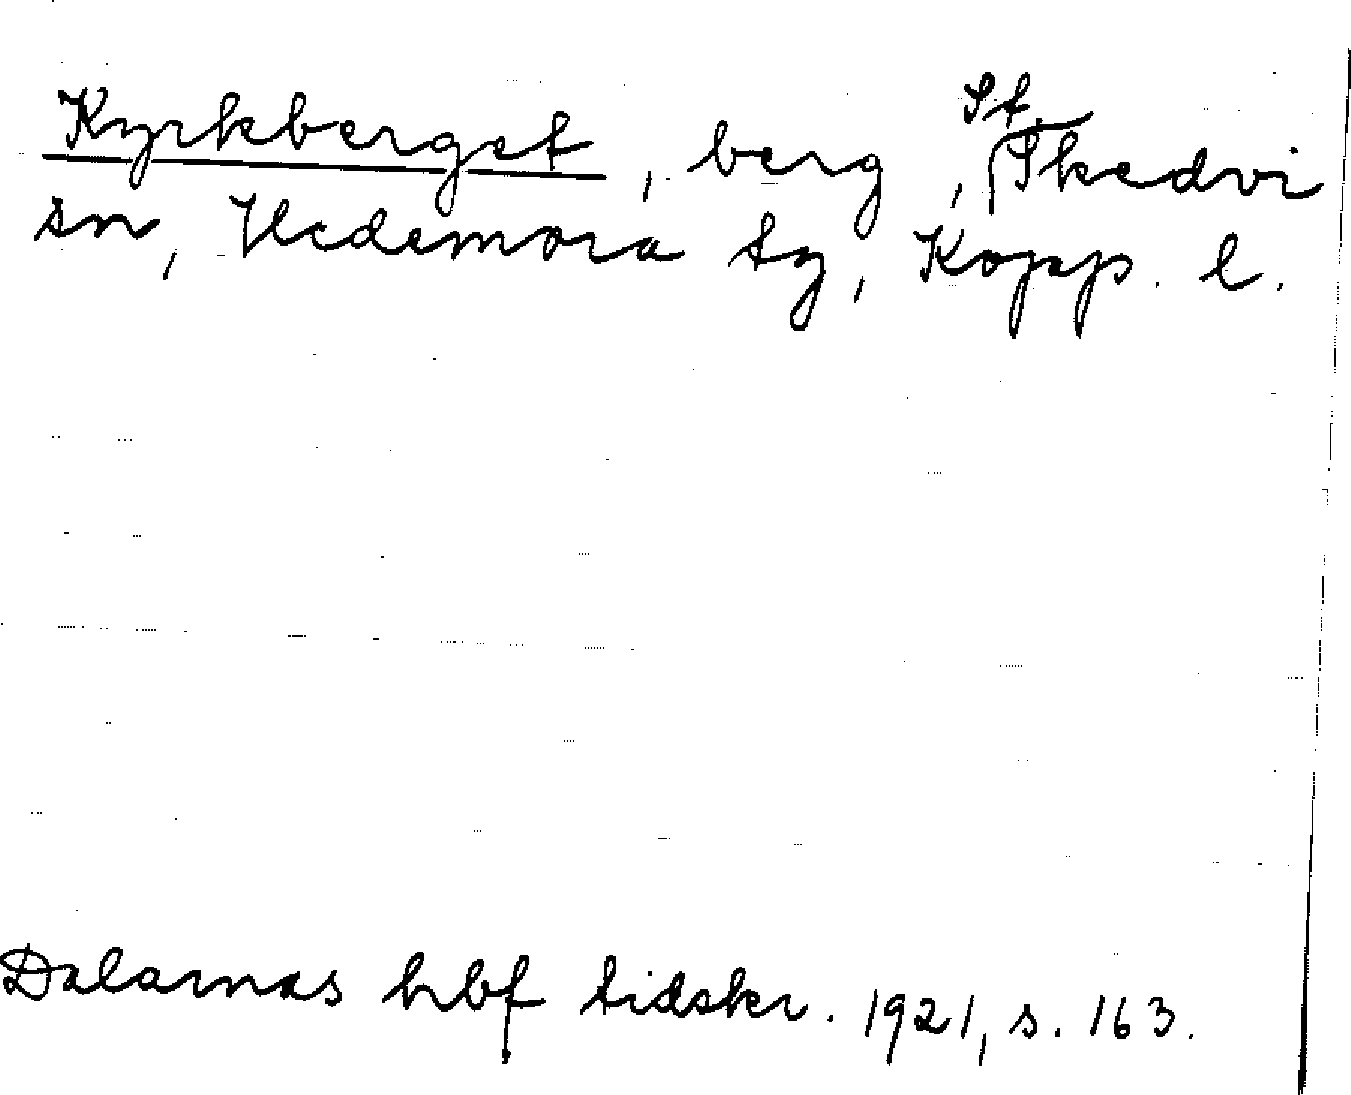 Kyrkberget, berg, St. Skedvi
sn, Hedemora tg, Kopp. l.
Dalarnas hbf tidskr. 1921, s. 163.